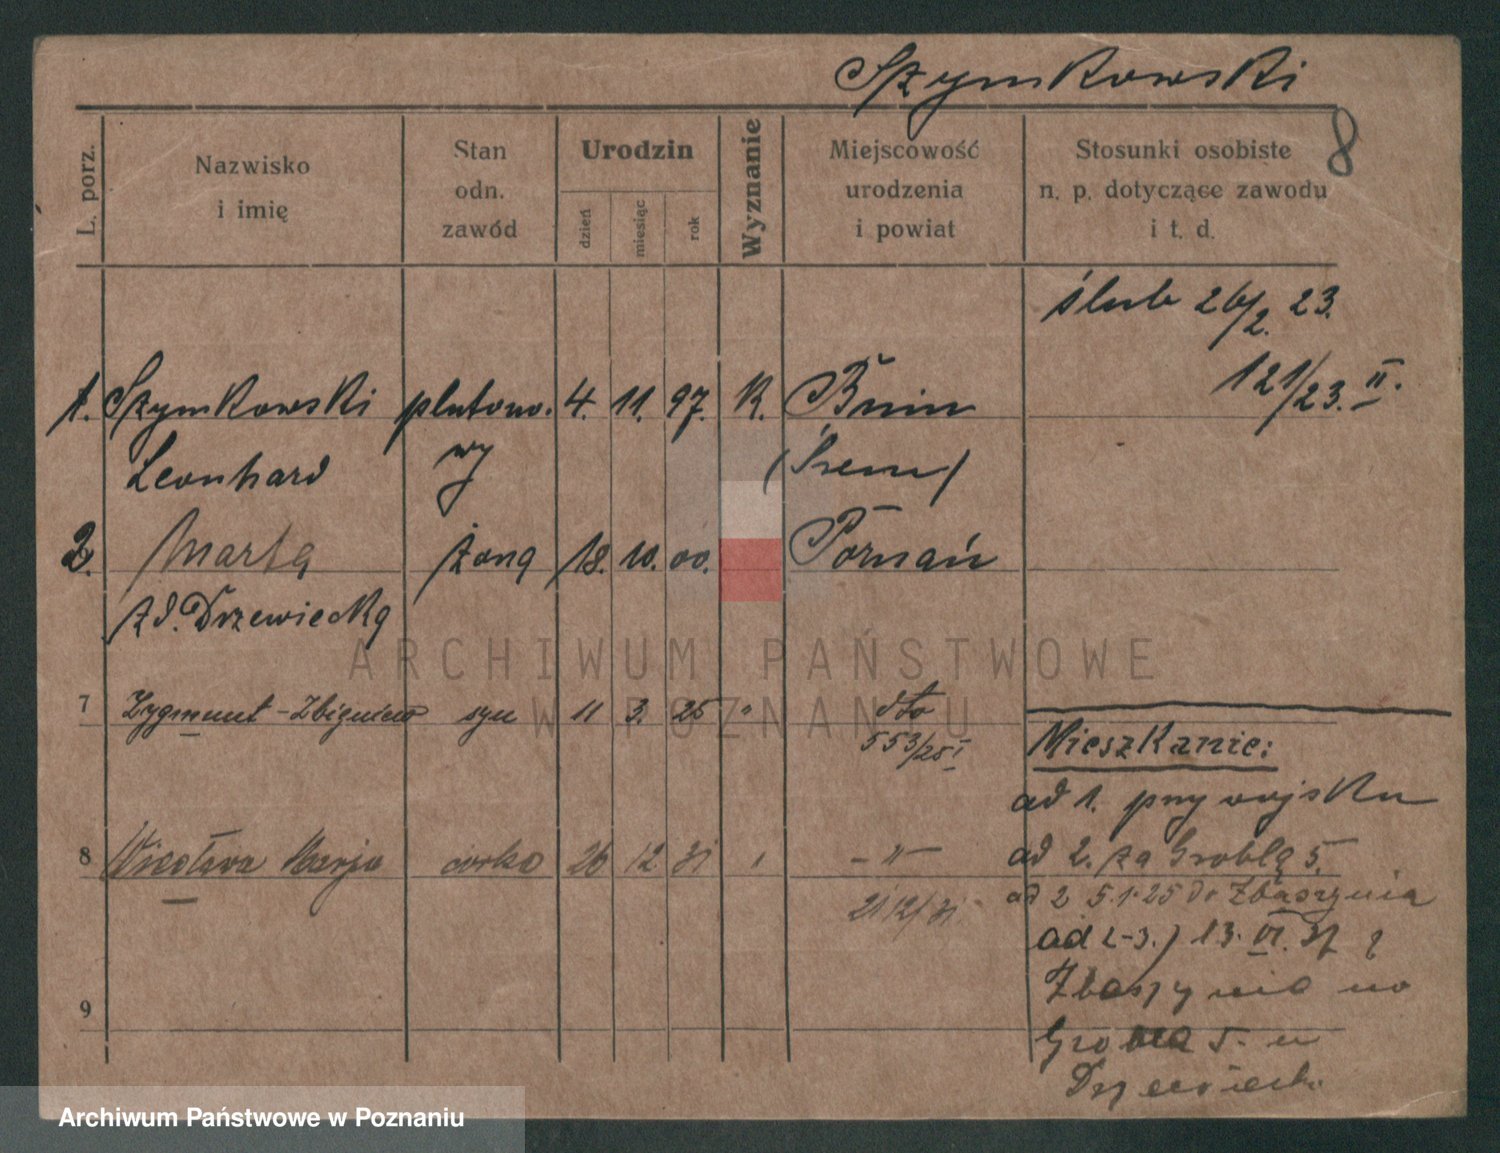 Szymkowski
8
L. porz.
Nazwisko
i imię
Stan
odn.
zawód
Urodzin
dzień
miesiąc
rok
Wyznanie
Miejscowość
urodzenia
i powiat
Stosunki osobiste
n. p. dotyczące zawodu
i t. d.
ślub 26/2. 23.
121/23. II.
1. Szymkowski plutono. 4. 11. 97. K. Bnin
Leonhard wy (Śrem)
2. Marta żona 18. 10. 00. Poznań
zd. Drzewiecka
7 Zygmunt-Zbigniew syn 11 3. 25 " dto
553/25 I
Mieszkanie:
ad 1. przy wojsku
8 Wiesława Marja córka 26 12 31 " - " -
ad 2. za Groblą 5.
21/12/31
ad 2 5.1.25 do Zbąszynia
ad 2-3.) 13. VI. 31 z
Zbąszynia na
9
Grobla 5. u
Drzewiecki
ARCHIWUM PAŃSTWOWE
W POZNANIU
Archiwum Państwowe w Poznaniu